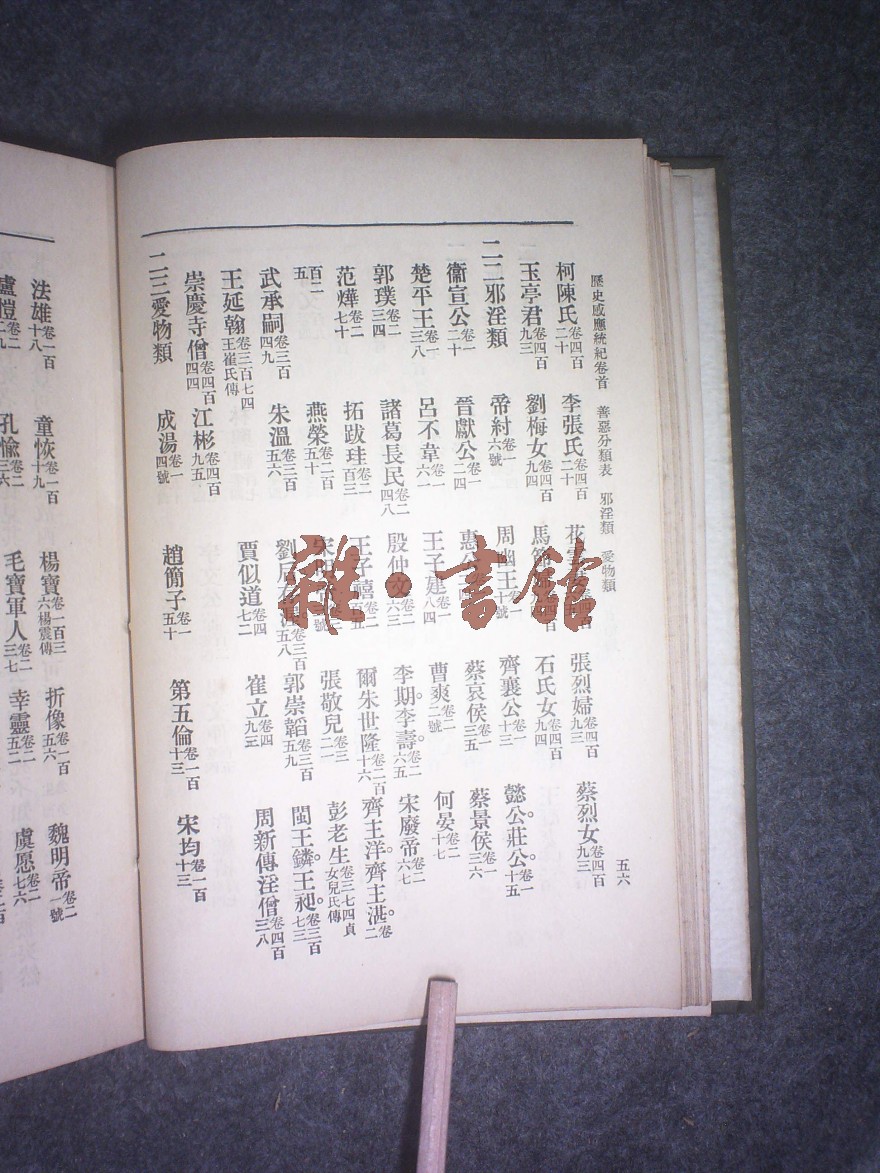 歷史感應統紀卷首 善惡分類表 邪淫類 愛物類 五六
柯陳氏卷四百二十 李張氏卷四百二十 張烈婦卷四百九三 蔡烈女卷四百九三
玉亭君卷四百九三 劉梅女卷四百九四 石氏女卷四百九四
二二邪淫類 帝紂卷一六號 周幽王卷一十號 齊襄公卷一十三 懿公。莊公。卷一十五
衞宣公卷一二十 晉獻公卷一二四 蔡哀侯卷一三五 蔡景侯卷一三六
楚平王卷一三八 呂不韋卷一六一 王子建卷一八四 曹爽卷二二號 何晏卷二十七
郭璞卷二三四 諸葛長民卷二四八 殷仲文卷二六三 李期。李壽。卷二六五 宋廢帝卷二六七
范燁卷二七十 拓跋珪卷二百三 王子禧 爾朱世隆卷二百十六 齊主洋。齊主湛。卷二
百二五 燕榮卷二百五十 張敬兒卷三二一 彭老生卷三七四貞女兒氏傳
武承嗣卷三百四九 朱溫卷三百五六 卷三百五八 郭崇韜卷三百五九 閩王鏻。王昶。卷三百七三
王延翰卷三百七四王崔氏傳 賈似道卷四七二 崔立卷四九三 周新傳淫僧卷四百三八
崇慶寺僧卷四百四四 江彬卷四百九五
二三愛物類 成湯卷一四號 趙簡子卷一五十 第五倫卷一百十三 宋均卷一百十三
法雄卷一百十八 童恢卷一百十九 楊寶卷一百三六楊震傳 折像卷一百五六 魏明帝卷二一號
盧愷 孔愉卷二三六 毛寶軍人卷二三七 幸靈卷二五二 虞愿卷二七六